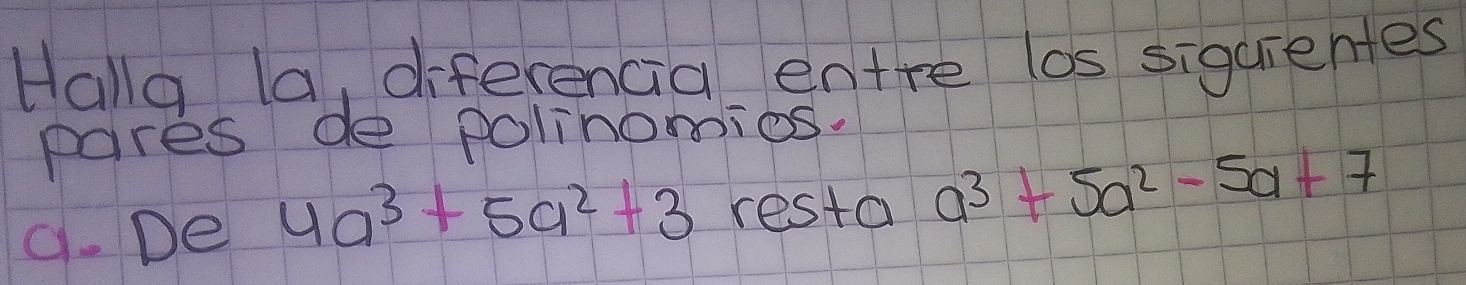 Halla la diferencia entre los siguientes
pares de polinomios.
a. De 4a³ + 5a² + 3 resta a³ + 5a² - 5a + 7